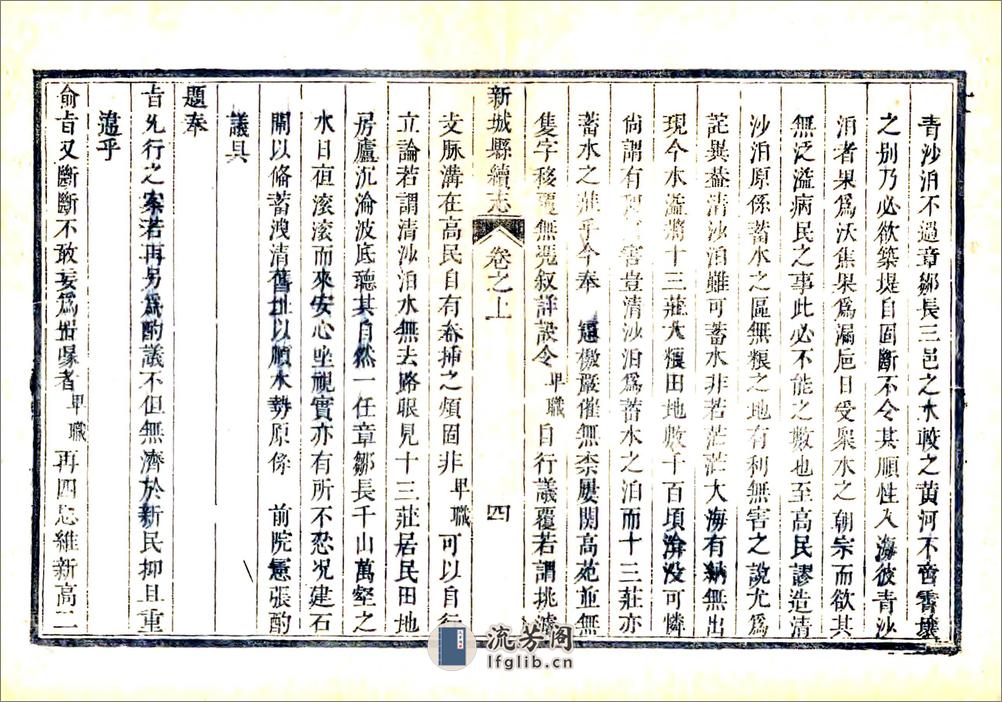 青沙泊不過章鄒長三邑之水較之黃河不啻霄壤
之别乃必欲築堤自固斷不令其順性入海彼青沙
泊者果爲沃焦果爲漏巵日受衆水之朝宗而欲其
無泛溢病民之事此必不能之數也至高民謬造清
沙泊原係蓄水之區無粮之地有利無害之說尤爲
詫異葢清沙泊雖可蓄水非若茫茫大海有納無出
現今水溢將十三莊大粮田地數千百頃淹没可憐
尚謂有利 害豈清沙泊爲蓄水之泊而十三莊亦
蓄水之莊乎今奉 憲檄嚴催無柰屢關高苑並無
隻字移覆無凴叙詳設令卑職自行議覆若謂挑濬
新城縣續志 卷之上 四
支脉溝在高民自有畚揷之煩固非卑職可以自行
立論若謂清沙泊水無去路眼見十三莊居民田地
房廬沉淪波底聽其自然一任章鄒長千山萬壑之
水日夜滚滚而來安心坐視實亦有所不忍况建石
閘以俻蓄洩清舊址以順水勢原係 前院憲張酌
議具
題奉
旨先行之案若再另爲酌議不但無濟於新民抑且重
違乎
俞旨又斷斷不敢妄爲 者卑職再四思維新高二
流芳阁
lfglib.cn